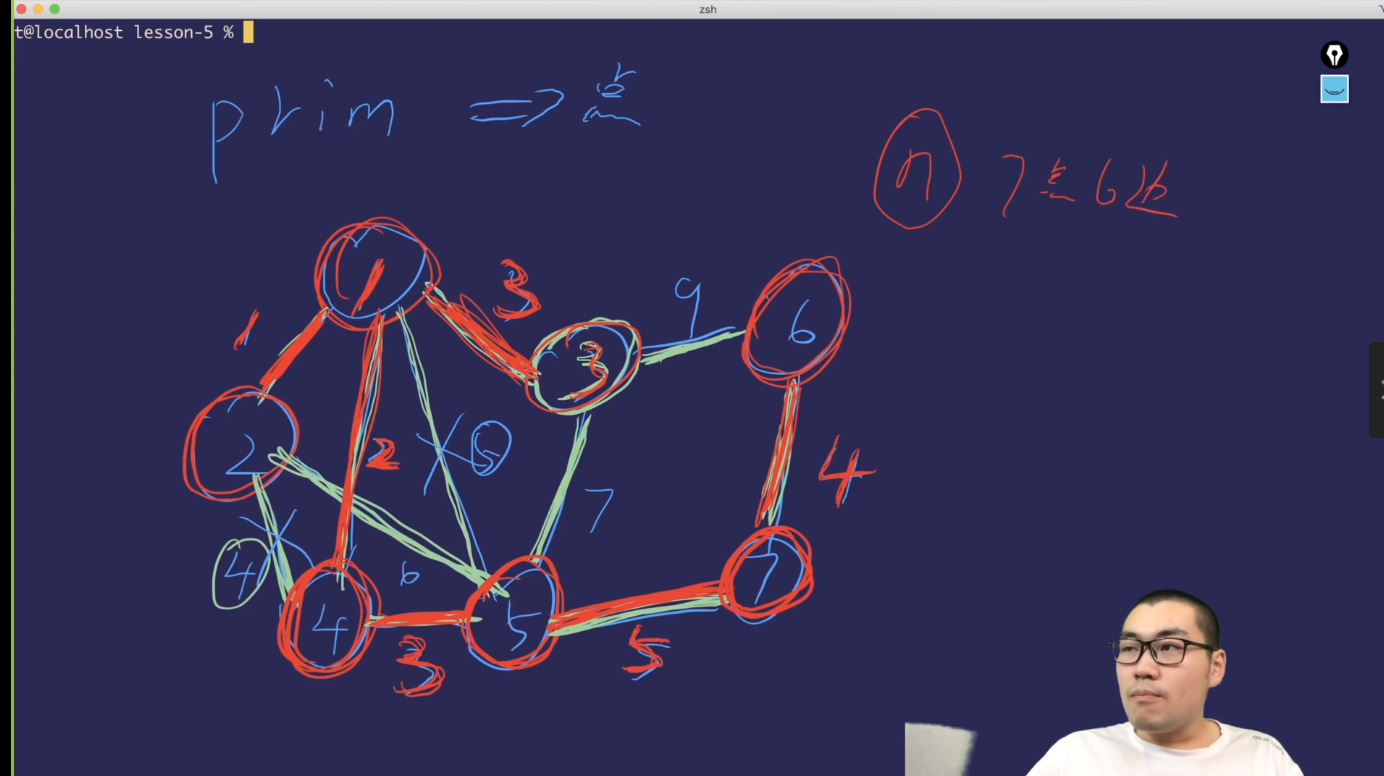 zsh
t@localhost lesson-5 %
prim => 点
n 7点6边
1
3
9
6
1
3
2
2
5
4
7
4
6
7
4
5
3
5